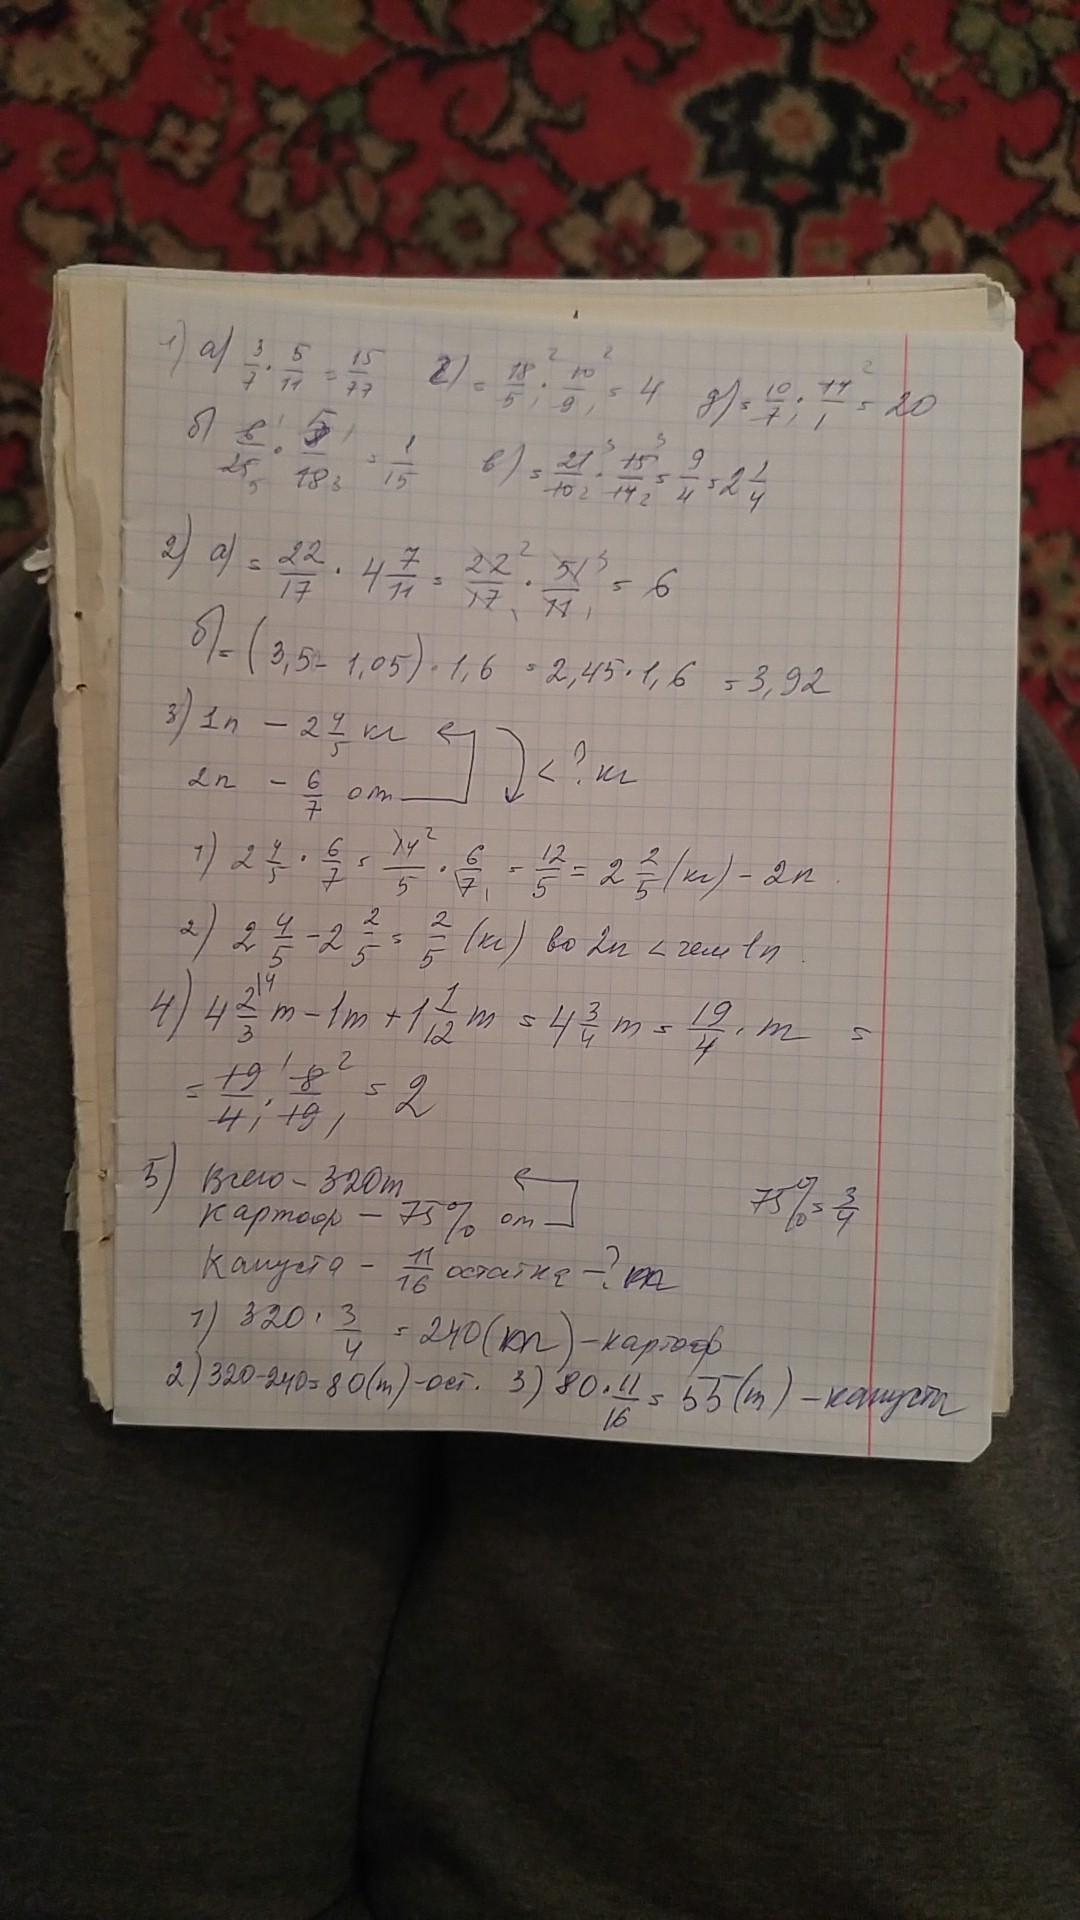 1) а) 3/7 · 5/11 = 15/77 г) = 18/5 · 10/9 = 4 д) = 10/7 · 14/1 = 20
б) 6/25 · 5/18 = 1/15 в) = 21/10 · 15/14 = 9/4 = 2 1/4
2) а) = 22/17 · 4 7/11 = 22/17 · 51/11 = 6
б) = (3,5 - 1,05) · 1,6 = 2,45 · 1,6 = 3,92
3) 1п - 2 4/5 кг < ? кг
2п - 6/7 от
1) 2 4/5 · 6/7 = 14/5 · 6/7 = 12/5 = 2 2/5 (кг) - 2п.
2) 2 4/5 - 2 2/5 = 2/5 (кг) во 2п < чем 1п.
4) 4 2/3 m - 1m + 1 1/12 m = 4 3/4 m = 19/4 · m =
= 19/4 · 8/19 = 2
5) Всего - 320т
картоф - 75% от 75% = 3/4
Капуста - 11/16 остатка - ?
1) 320 · 3/4 = 240 - картоф
2) 320-240=80(т)-ост. 3) 80 · 11/16 = 55(т) - капуста